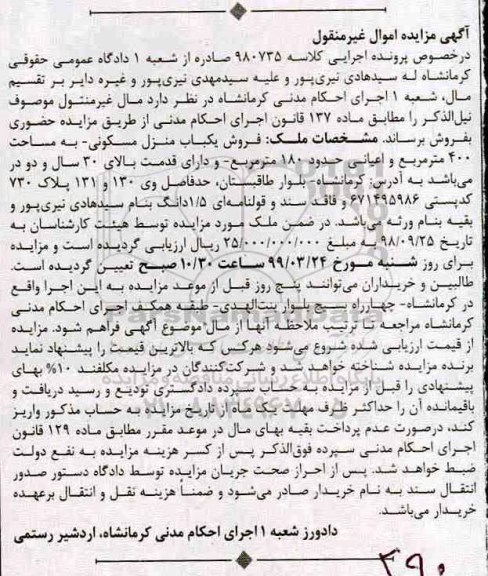 آگهی مزایده اموال غیرمنقول
درخصوص پرونده اجرایی کلاسه ۹۸۰۷۳۵ صادره از شعبه ۱ دادگاه عمومی حقوقی
کرمانشاه له سیدهادی نیری‌پور و علیه سیدمهدی نیری‌پور و غیره دایر بر تقسیم
مال، شعبه ۱ اجرای احکام مدنی کرمانشاه در نظر دارد مال غیرمنتول موصوف
نیل‌الذکر را مطابق ماده ۱۳۷ قانون اجرای احکام مدنی از طریق مزایده حضوری
بفروش برساند. مشخصات ملک: فروش یکباب منزل مسکونی- به مساحت
۴۰۰ مترمربع و اعیانی حدود ۱۸۰ مترمربع- و دارای قدمت بالای ۳۰ سال و دو در
می‌باشد به آدرس: کرمانشاه- بلوار طاقبستان، حدفاصل وی ۱۳۰ و ۱۳۱ پلاک ۷۳۰
کدپستی ۶۷۱۴۹۵۹۸۶ و فاقد سند و قولنامه‌ای ۱/۵دانگ بنام سیدهادی نیری‌پور و
بقیه بنام ورثه می‌باشد. در ضمن ملک مورد مزایده توسط هیئت کارشناسان به
تاریخ ۹۸/۰۹/۲۵ به مبلغ ۲۵/۰۰۰/۰۰۰/۰۰۰ ریال ارزیابی گردیده است و مزایده
برای روز شنبه مورخ ۹۹/۰۳/۲۴ ساعت ۱۰/۳۰ صبح تعیین گردیده است.
طالبین و خریداران می‌توانند پنج روز قبل از موعد مزایده به این اجرا واقع
در کرمانشاه- چهارراه بسیج بلوار بنت‌الهدی- طبقه همکف اجرای احکام مدنی
کرمانشاه مراجعه تا ترتیب ملاحظه آنها از مال موضوع آگهی فراهم شود. مزایده
از قیمت ارزیابی شده شروع می‌شود هرکس که بالاترین قیمت را پیشنهاد نماید
برنده مزایده شناخته خواهد شد و شرکت‌کنندگان در مزایده مکلفند ۱۰% بهای
پیشنهادی را قبل از مزایده به حساب سپرده دادگستری تودیع و رسید دریافت و
باقیمانده آن را حداکثر ظرف مهلت یک ماه از تاریخ مزایده به حساب مذکور واریز
کند، درصورت عدم پرداخت بقیه بهای مال در موعد مقرر مطابق ماده ۱۲۹ قانون
اجرای احکام مدنی سپرده فوق‌الذکر پس از کسر هزینه مزایده به نفع دولت
ضبط خواهد شد. پس از احراز صحت جریان مزایده توسط دادگاه دستور صدور
انتقال سند به نام خریدار صادر می‌شود و ضمناً هزینه نقل و انتقال برعهده
خریدار می‌باشد.
دادورز شعبه ۱ اجرای احکام مدنی کرمانشاه، اردشیر رستمی
۳۹۰